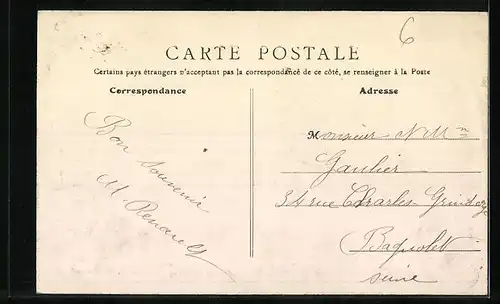 6
CARTE POSTALE
Certains pays étrangers n'acceptant pas la correspondance de ce côté, se renseigner à la Poste
Correspondance
Adresse
Bon Souvenir
M Renault
Monsieur
Gaulier
34 rue Charles
Bagnolet
Seine